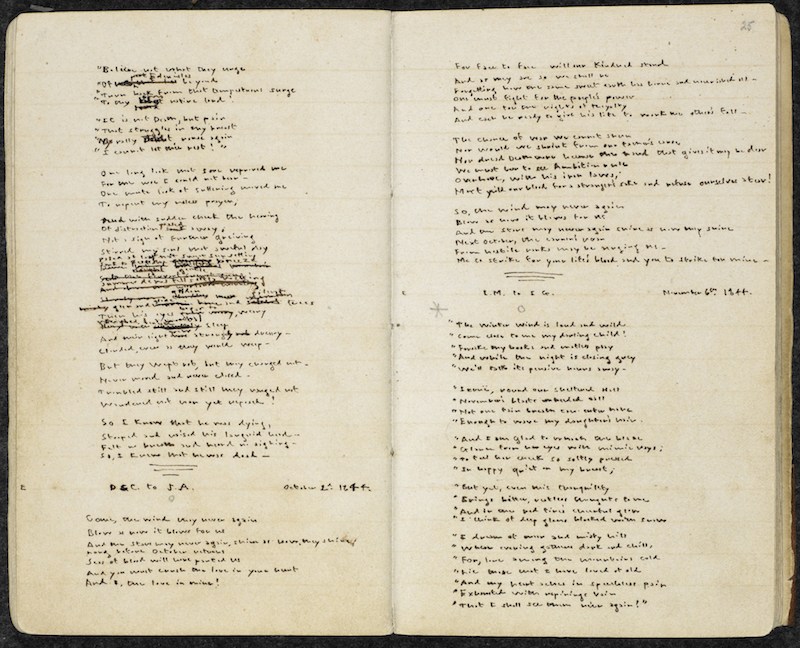 "Believe not what they urge
"Of Eden isles beyond
"Turn back from that tempestuous surge
"To thy native land!
"It is not Death, but pain
"That struggles in thy breast
rouse again
"I cannot let thee rest!"
One long look that sore reproved me
For the woe I could not bear—
One mute look of suffering moved me
To repent my useless prayer;
And with sudden check the heaving
Of distraction away;
Not a sign of further grieving
Stirred my soul that awful day
weary
And their sight dreary—
Clouded, even as they would weep—
But they wept not, but they changed not—
Never moved and never closed—
Troubled still and still they ranged not
Wandered not nor yet reposed!
So I knew that he was dying,
Stooped and raised his languid head—
Felt no breath and heard no sighing—
So, I knew that he was dead—
E D.G.C. to J.A. October 2d 1844.
Come, the wind may never again
Blow as now it blows for us
And the stars may never again, shine as now they shine
Long before October returns
Seas of blood will have parted us
And you must crush the love in your heart
And I, the love in mine!
25
For Face to Face will our Kindred stand
And as they are so we shall be
Forgetting how the same sweet earth has borne and nourished all—
One must fight for the people's power
And one for the rights of royalty
And each be ready to give his life to work the other's fall—
The chance of war we cannot shun
Nor would we shrink from our fathers' cause
Nor dread Death more because the hand that gives it may be dear
We must bear to see Ambition rule
Over Love, with his iron laws;
Must yield our blood for a stranger's sake and refuse ourselves a tear!
So, the wind may never again
Blow as now it blows for us
And the stars may never again shine as now they shine
Next October, the cannon's roar
From hostile ranks may be urging us—
Me to strike for your life's blood and you to strike for mine—
E I.M. to I.G. November 6th 1844.
"The winter wind is loud and wild
"Come close to me my darling child!
"Forsake thy books and mateless play
"And while the night is closing grey
"We'll talk its pensive hours away—
"Iernë, round our sheltered hall
"November's blasts unheeded call
"Not one faint breath can enter here
"Enough to wave my daughter's hair—
"And I am glad to watch the blaze
"Glance from her eyes with mimic rays;
"To feel her cheek so softly pressed
"In happy quiet on my breast;
"But yet, even this tranquility
"Brings bitter, restless thoughts to me
"And in the red fire's cheerful glow
"I think of deep glens blocked with snow
"I dream of moor and misty hill
"Where evening gathers dark and chill,
"For, lone among the mountains cold
"Lie those that I have loved of old
"And my heart aches in speechless pain
"Exhausted with repinings vain
"That I shall see them ne'er again!"